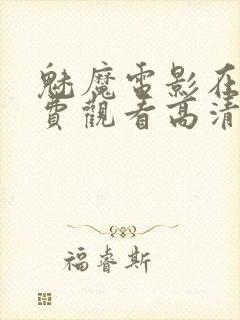 魅魔電影在
費觀看高清
福睿斯